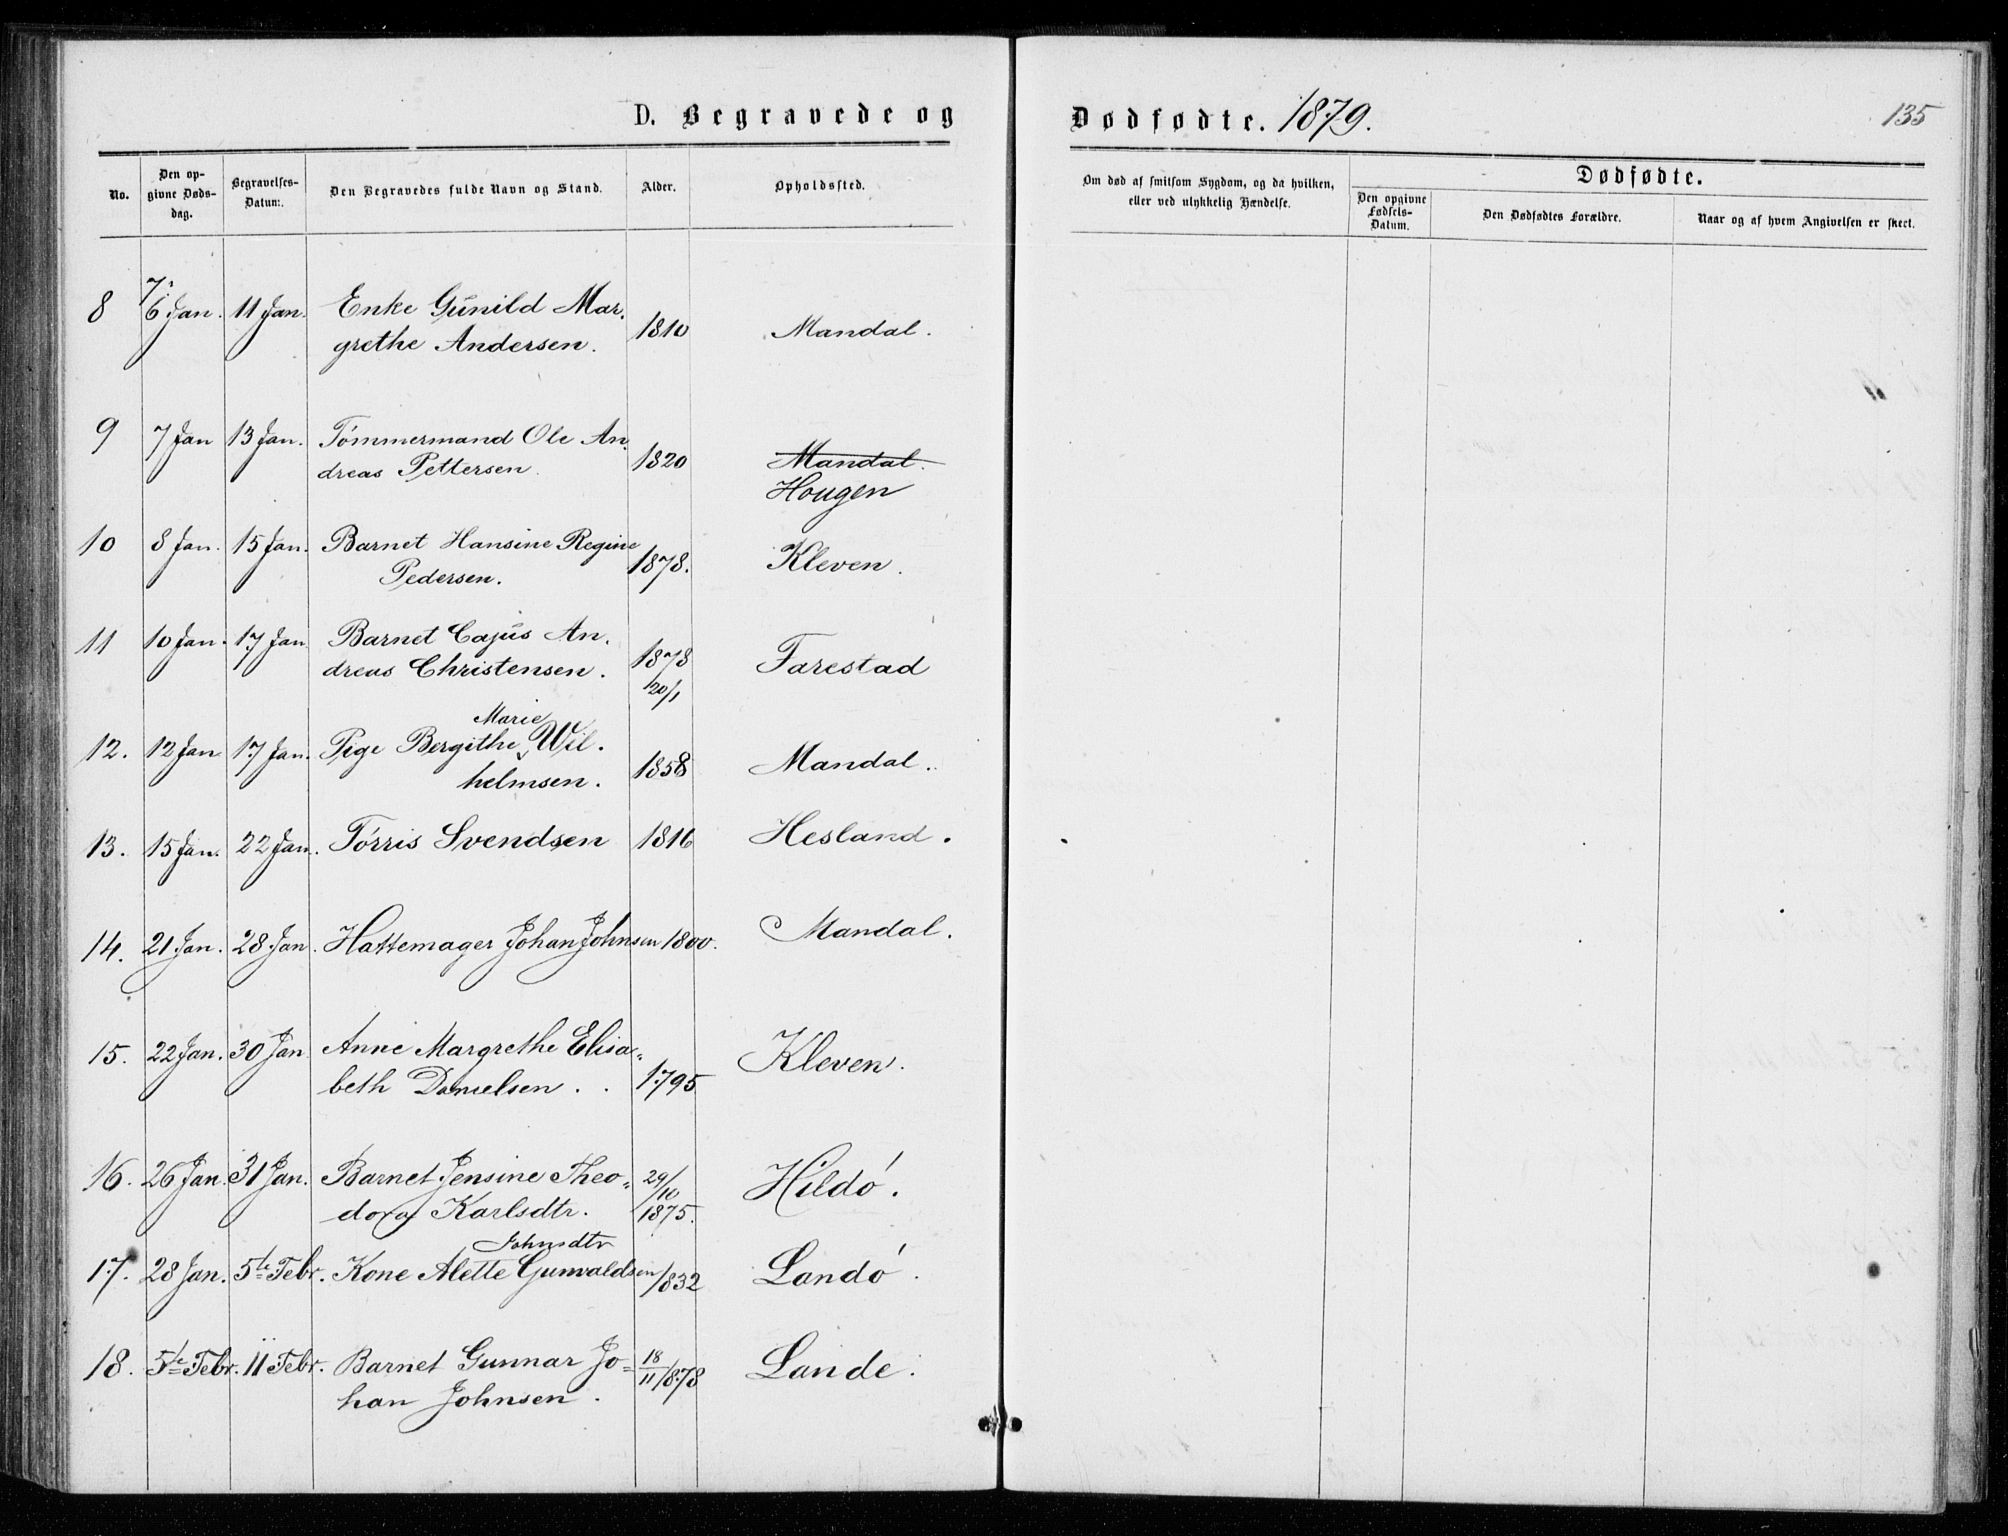 D. Begravede og
Dødfødte. 1879.
135
No.
Den op-
givne Døds-
dag.
Begravelses-
Datum:
Den Begravedes fulde Navn og Stand.
Alder.
Opholdssted.
Om død af smitsom Sygdom, og da hvilken,
eller ved ulykkelig Hændelse.
Dødfødte.
Den opgivne
Fødsels-
Datum.
Den Dødfødtes Forældre.
Naar og af hvem Angivelsen er skeet.
8 6 Jan. 11 Jan. Enke Gunild Mar.
grethe Andersen. 1810 Mandal.
9 7 Jan 13 Jan. Tømmermand Ole An.
dreas Pettersen. 1820 Mandal.
Hougen
10 8 Jan. 15 Jan. Barnet Hansine Regine
Pedersen. 1878. Kleven.
11 10 Jan. 17 Jan Barnet Cajus An.
dreas Christensen. 1878 Farestad
20/1
Marie
12. 12 Jan 17 Jan. Pige Bergithe Wil.
helmsen. 1858 Mandal.
13. 15 Jan. 22 Jan. Tørris Svendsen 1816 Hesland.
14. 21 Jan. 28 Jan. Hattemager Johan Johnsen 1800. Mandal.
15. 22 Jan. 30 Jan Anne Margrethe Elisa„
beth Danielsen. . 1795 Kleven.
16. 26 Jan. 31 Jan. Barnet Jensine Theo„ 29/10
dora Karlsdtr. 1875. Hildø.
Johnsdtr
17. 28 Jan. 5te Febr. Kone Alette Gunvaldsen 1832 Landø.
18. 5te Febr. 11 Febr. Barnet Gunnar Jo= 18/11 1878 Lande.
han Johnsen.